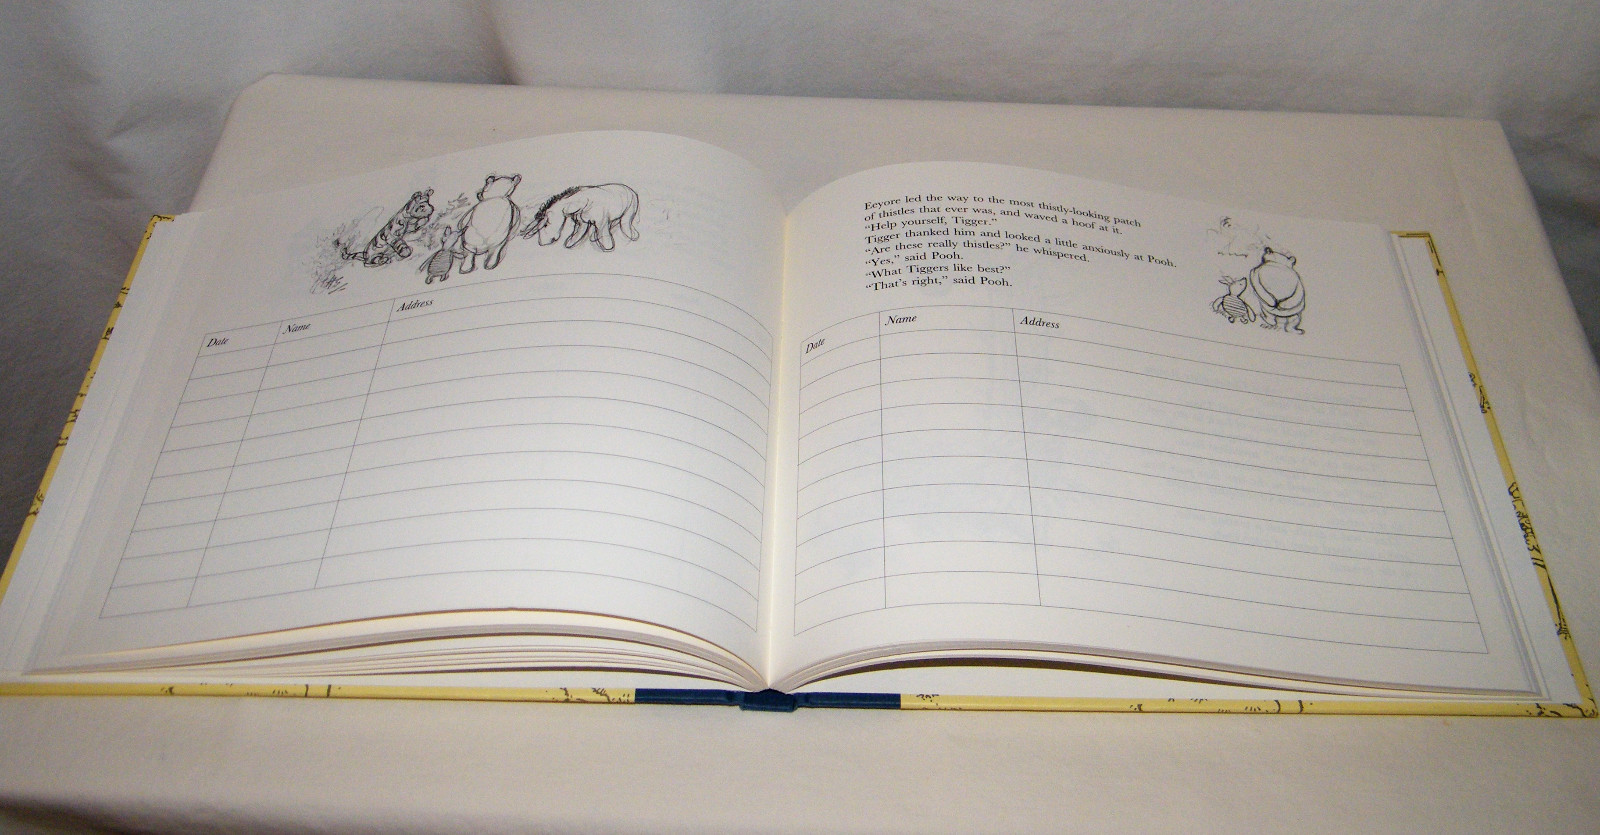 Date
Name
Address
Eeyore led the way to the most thistly-looking patch
of thistles that ever was, and waved a hoof at it.
“Help yourself, Tigger.”
Tigger thanked him and looked a little anxiously at Pooh.
“Are these really thistles?” he whispered.
“Yes,” said Pooh.
“What Tiggers like best?”
“That’s right,” said Pooh.
Date
Name
Address